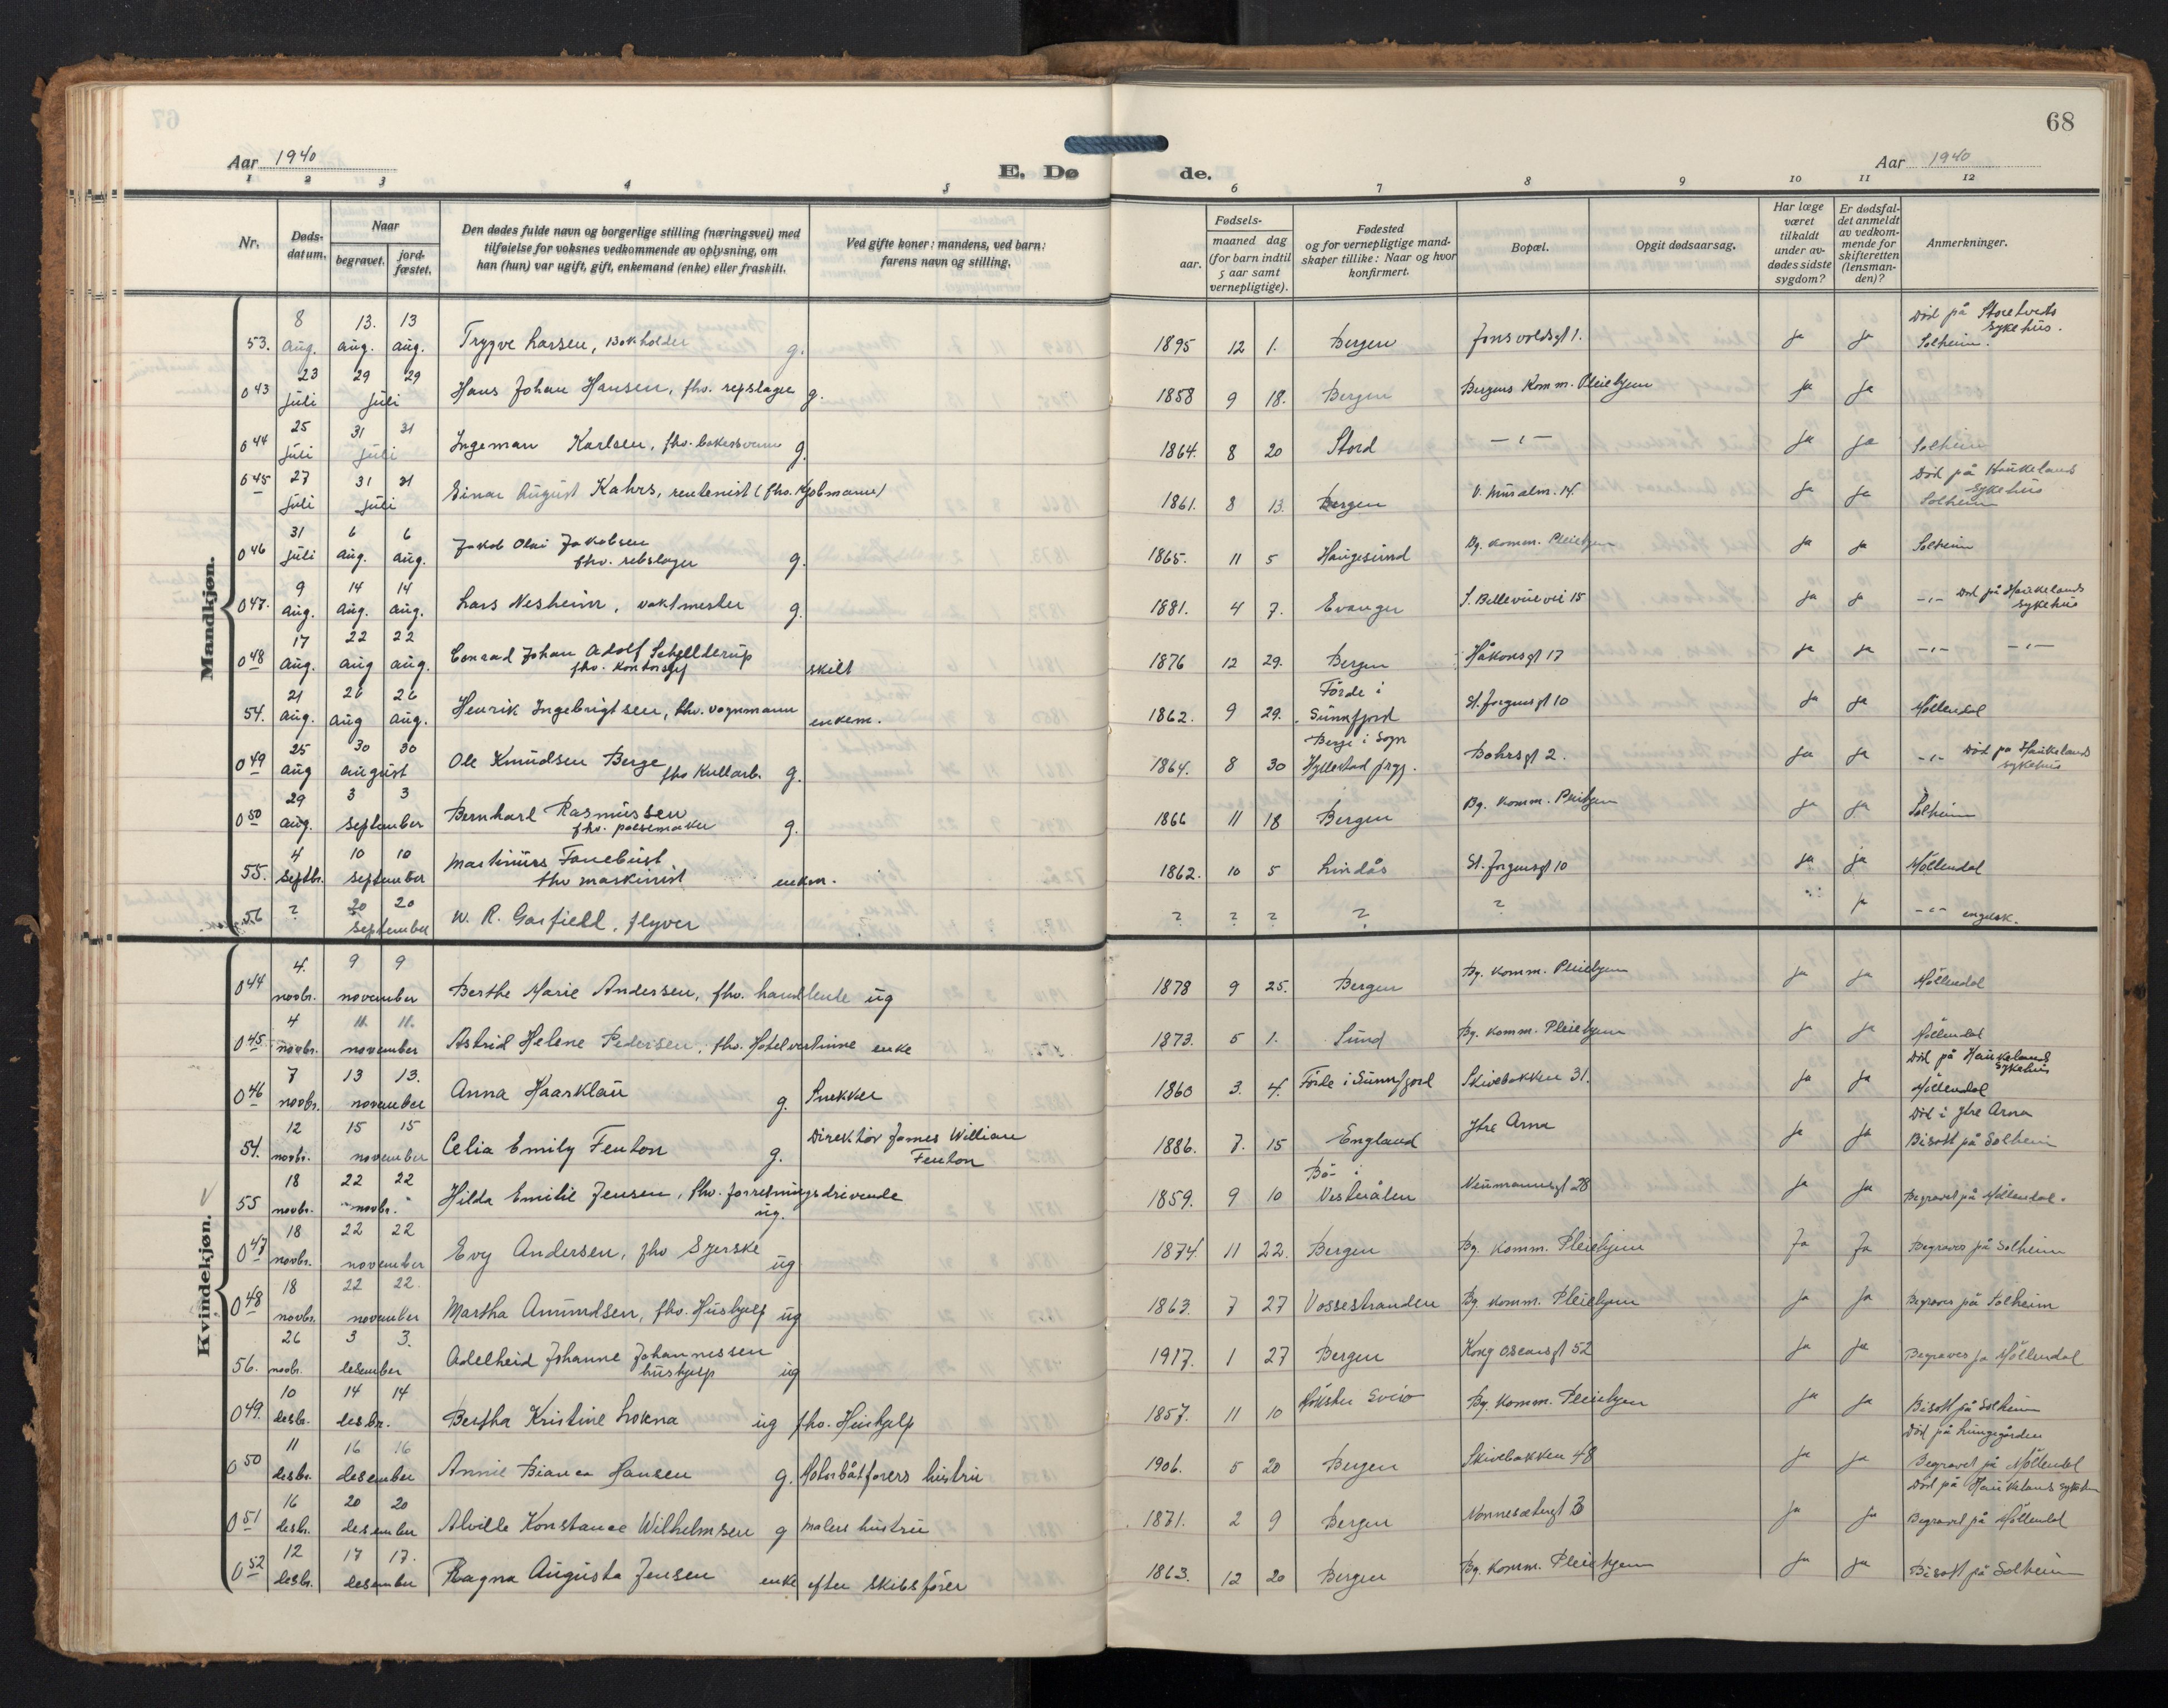 67
68
Aar 1940
E. Dø
de.
Aar 1940
1 2 3 4 5 6 7 8 9 10 11 12
Nr.
Døds-datum.
Naar
begravet.
jord-fæstet.
Den dødes fulde navn og borgerlige stilling (næringsvei) med
tilføielse for voksnes vedkommende av oplysning, om
han (hun) var ugift, gift, enkemand (enke) eller fraskilt.
Ved gifte koner: mandens, ved barn:
farens navn og stilling.
Fødsels-
aar.
maaned dag
(for barn indtil
5 aar samt
vernepligtige).
Fødested
og for vernepligtige mand-
skaper tillike: Naar og hvor
konfirmert.
Bopæl.
Opgit dødsaarsag.
Har læge
været
tilkaldt
under av-
dødes sidste
sygdom?
Er dødsfal-
det anmeldt
av vedkom-
mende for
skifteretten
(lensman-
den)?
Anmerkninger.
Mandkjøn.
53. 8 aug. 13. aug. 13 aug. Trygve Larsen, Bokholder g. 1895 12 1. Bergen Jonsvoldsgt 1. Ja Ja Död på Storetveits sykehus. Solheim.
043 23 juli 29 29 juli Hans Johan Hansen, fhv. repslager g. 1858 9 18. Bergen Bergens Komm. Pleiehjem Ja Ja
044 25 juli 31 31 juli Ingeman Karlsen, fhv. bakersvenn g. 1864. 8 20 Stord -"- Ja Ja Solheim
045 27 juli 31 31 juli Einar August Kahrs, rentenist (fhv. Kjöbmann) 1861. 8 13. Bergen V. Muralm. 14. Ja Ja Död på Haukelands sykehus Solheim
046 31 juli 6 aug. 6 aug. Jakob Olai Jakobsen fhv. rebslager g. 1865. 11 5 Haugesund Bg. komm. Pleiehjem Ja Ja Solheim
047. 9 aug. 14 aug. 14 aug. Lars Nesheim, vaktmester g. 1881. 4 7. Evanger S. Bellevuevei 15 Ja Ja -"- Död på Haukelands sykehus
048 17 aug. 22 aug 22 aug. Conrad Johan Adolf Schjelderup fhv. Kontorsjef skilt 1876 12 29. Bergen Håkonsgt 17 Ja Ja -"- -"-
54. 21 aug. 26 aug 26 aug. Henrik Ingebrigtsen, fhv. vognmann enkem. 1862. 9 29. Förde i Sunnfjord St. Jörgensgt 10 Ja Ja Möllendal
049 25 aug 30 30 august Ole Knudsen Berge fhv Kullarb. g. 1864. 8 30 Berge i Sogn Hyllestad prgj. Bohrsgt 2. Ja Ja -"- Död på Haukelands sykehus
050 29 aug. 3 3 september Bernhard Rasmussen fhv. pølsemaker g. 1866 11 18 Bergen Bg. Komm. Pleiehjem Ja Ja Solheim
55. 4 septbr. 10 10 september Martinius Fanebust fhv maskinist enkem. 1862. 10 5 Lindås St. Jörgensgt 10 Ja Ja Möllendal
56 ? 20 20 september W. R. Garfield, flyver ? ? ? ? ? Ja -"- engelsk.
Kvindekjøn.
044 4. novbr. 9 9 november Berthe Marie Andersen, fhv. handlende ug 1878 9 25. Bergen Bg. komm. Pleiehjem Ja Ja Möllendal
045 4 novbr. 11. 11. november Astrid Helene Pedersen, fhv. Hotelvertinne enke 1873. 5 1. Sund Bg. komm. Pleiehjem Ja Ja Möllendal
046 7 novbr. 13 13. november Anna Haarklau g. Snekker 1860 3. 4. Förde i Sunnfjord Skivebakken 31. Ja Ja Död på Haukelands sykehus Möllendal
54. 12 novbr. 15 15 november Celia Emily Fenton g. Direktör James William Fenton 1886. 7. 15 England Ytre Arna Ja Ja Död i Ytre Arna Bisatt på Solheim
55 18 novbr. 22 22 "novbr." Hilda Emilie Jensen, fhv. forretningsdrivende ug. 1859. 9 10 Bö i Vesterålen Neumannsgt 28 Ja Ja Begravet på Möllendal.
047 18 novbr. 22 22 november Evy Andersen, fhv Syerske ug 1874 11 22. Bergen Bg. Komm. Pleiehjem Ja Ja Begraves på Solheim
048 18 novbr. 22 22. november Martha Amundsen, fhv. Hushjelp ug 1863. 7 27 Vossestranden Bg. komm. Pleiehjem Ja Ja Begraves på Solheim
56. 26 novbr. 3 3. desember Adelheid Johanne Johannessen hushjelp ug 1917. 1 27 Bergen Kong Oscarsgt 52 Ja Ja Begraves på Möllendal
049. 10 desbr. 14 14 desbr. Bertha Kristine Lokna ug fhv. Hushjelp 1857. 11 10 Sveio Bg. Komm. Pleiehjem Ja Ja Bisatt på Solheim
050 11 desbr. 16 16 desember Annie Bianca Hansen g. Motorbåtförers hustru 1906. 5 20 Bergen Skivebakken 48 Ja Ja Död på Lungegården Begravet på Möllendal
051 16 desbr. 20 20 desember Alvilde Konstance Wilhelmsen g Malers hustru 1871. 2 9 Bergen Nonnesætergt 3 Ja Ja Död på Haukelands sykehus Begravet på Möllendal
052 12 desbr. 17 17. desember Ragna Augusta Jensen enke efter skibsförer 1863. 12 20 Bergen Bg. Komm. Pleiehjem Ja Ja Bisatt på Solheim